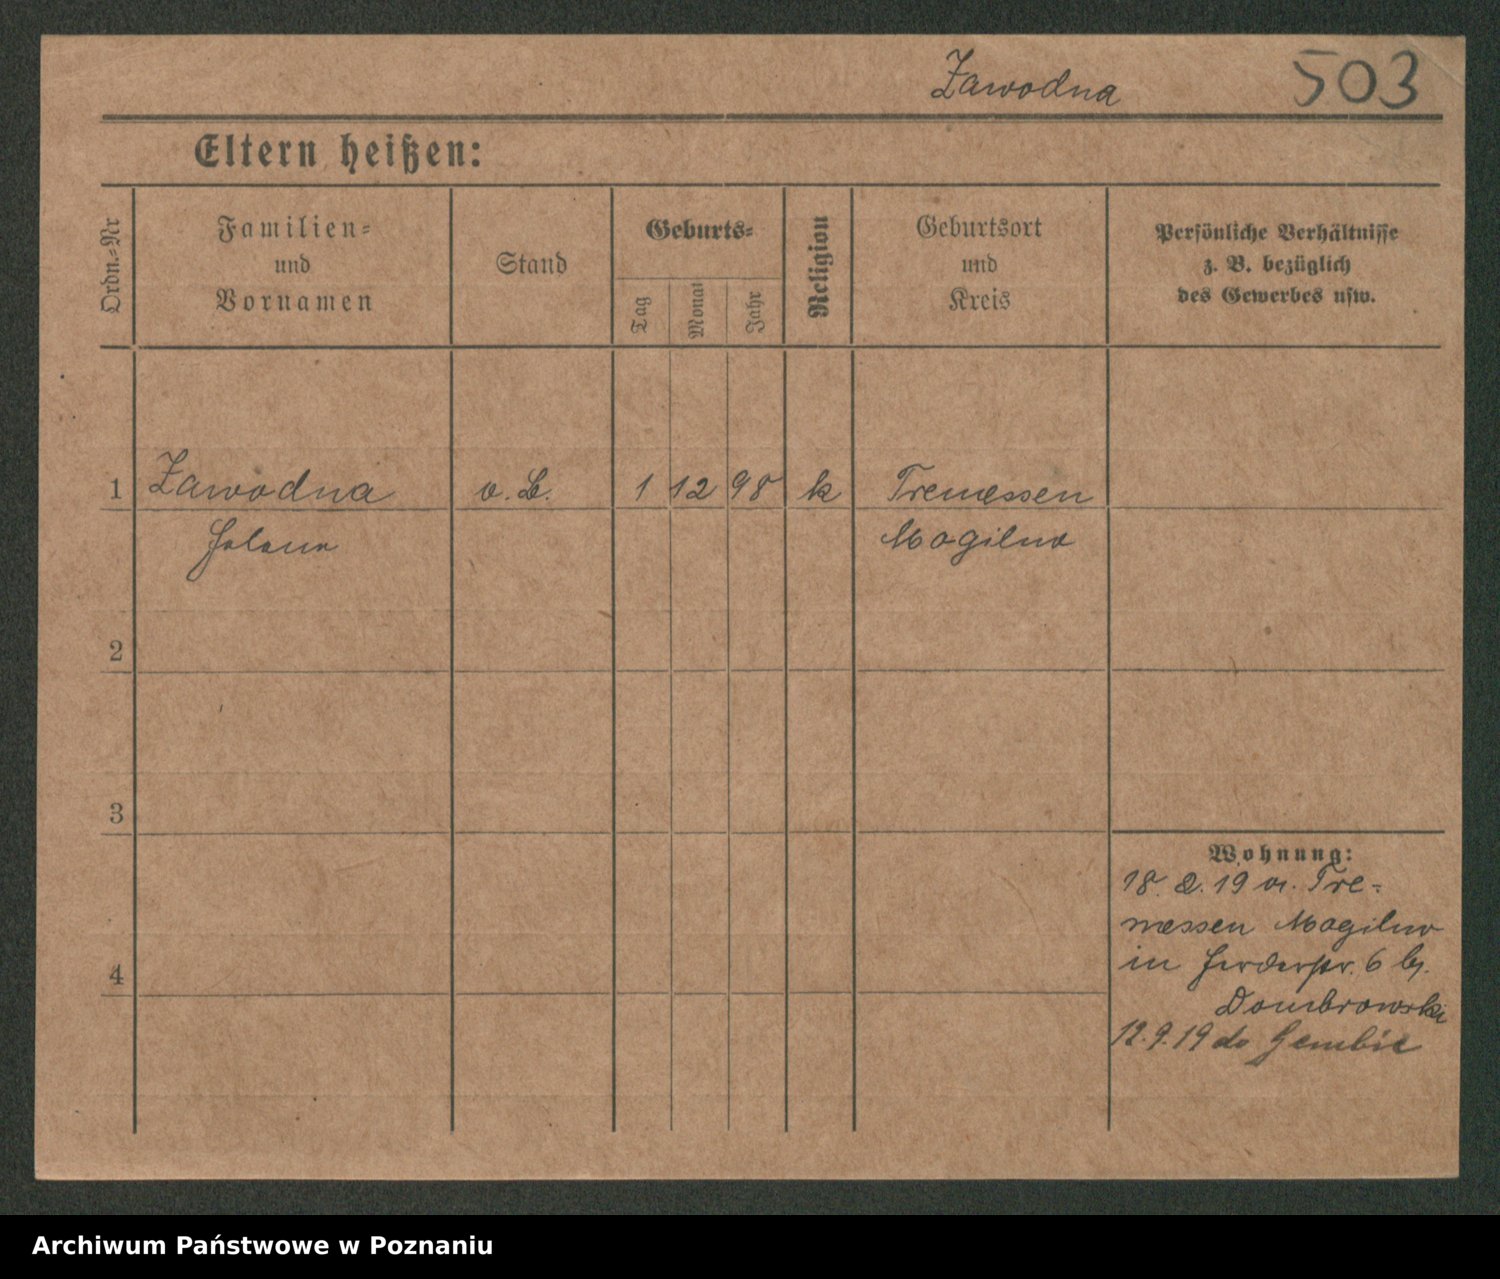 Zawodna 503
Eltern heißen:
Ordn.-Nr
Familien-
und
Vornamen
Stand
Geburts-
Tag
Monat
Jahr
Religion
Geburtsort
und
Kreis
Persönliche Verhältnisse
z. B. bezüglich
des Gewerbes usw.
1 Zawodna o. B. 1 12 98 k Tremessen
Helene Mogilno
2
3
Wohnung:
18. 2. 19 v. Tre-
messen Mogilno
in 6 b.
4
Dombrowski
12. 9. 19 do Gembic
Archiwum Państwowe w Poznaniu